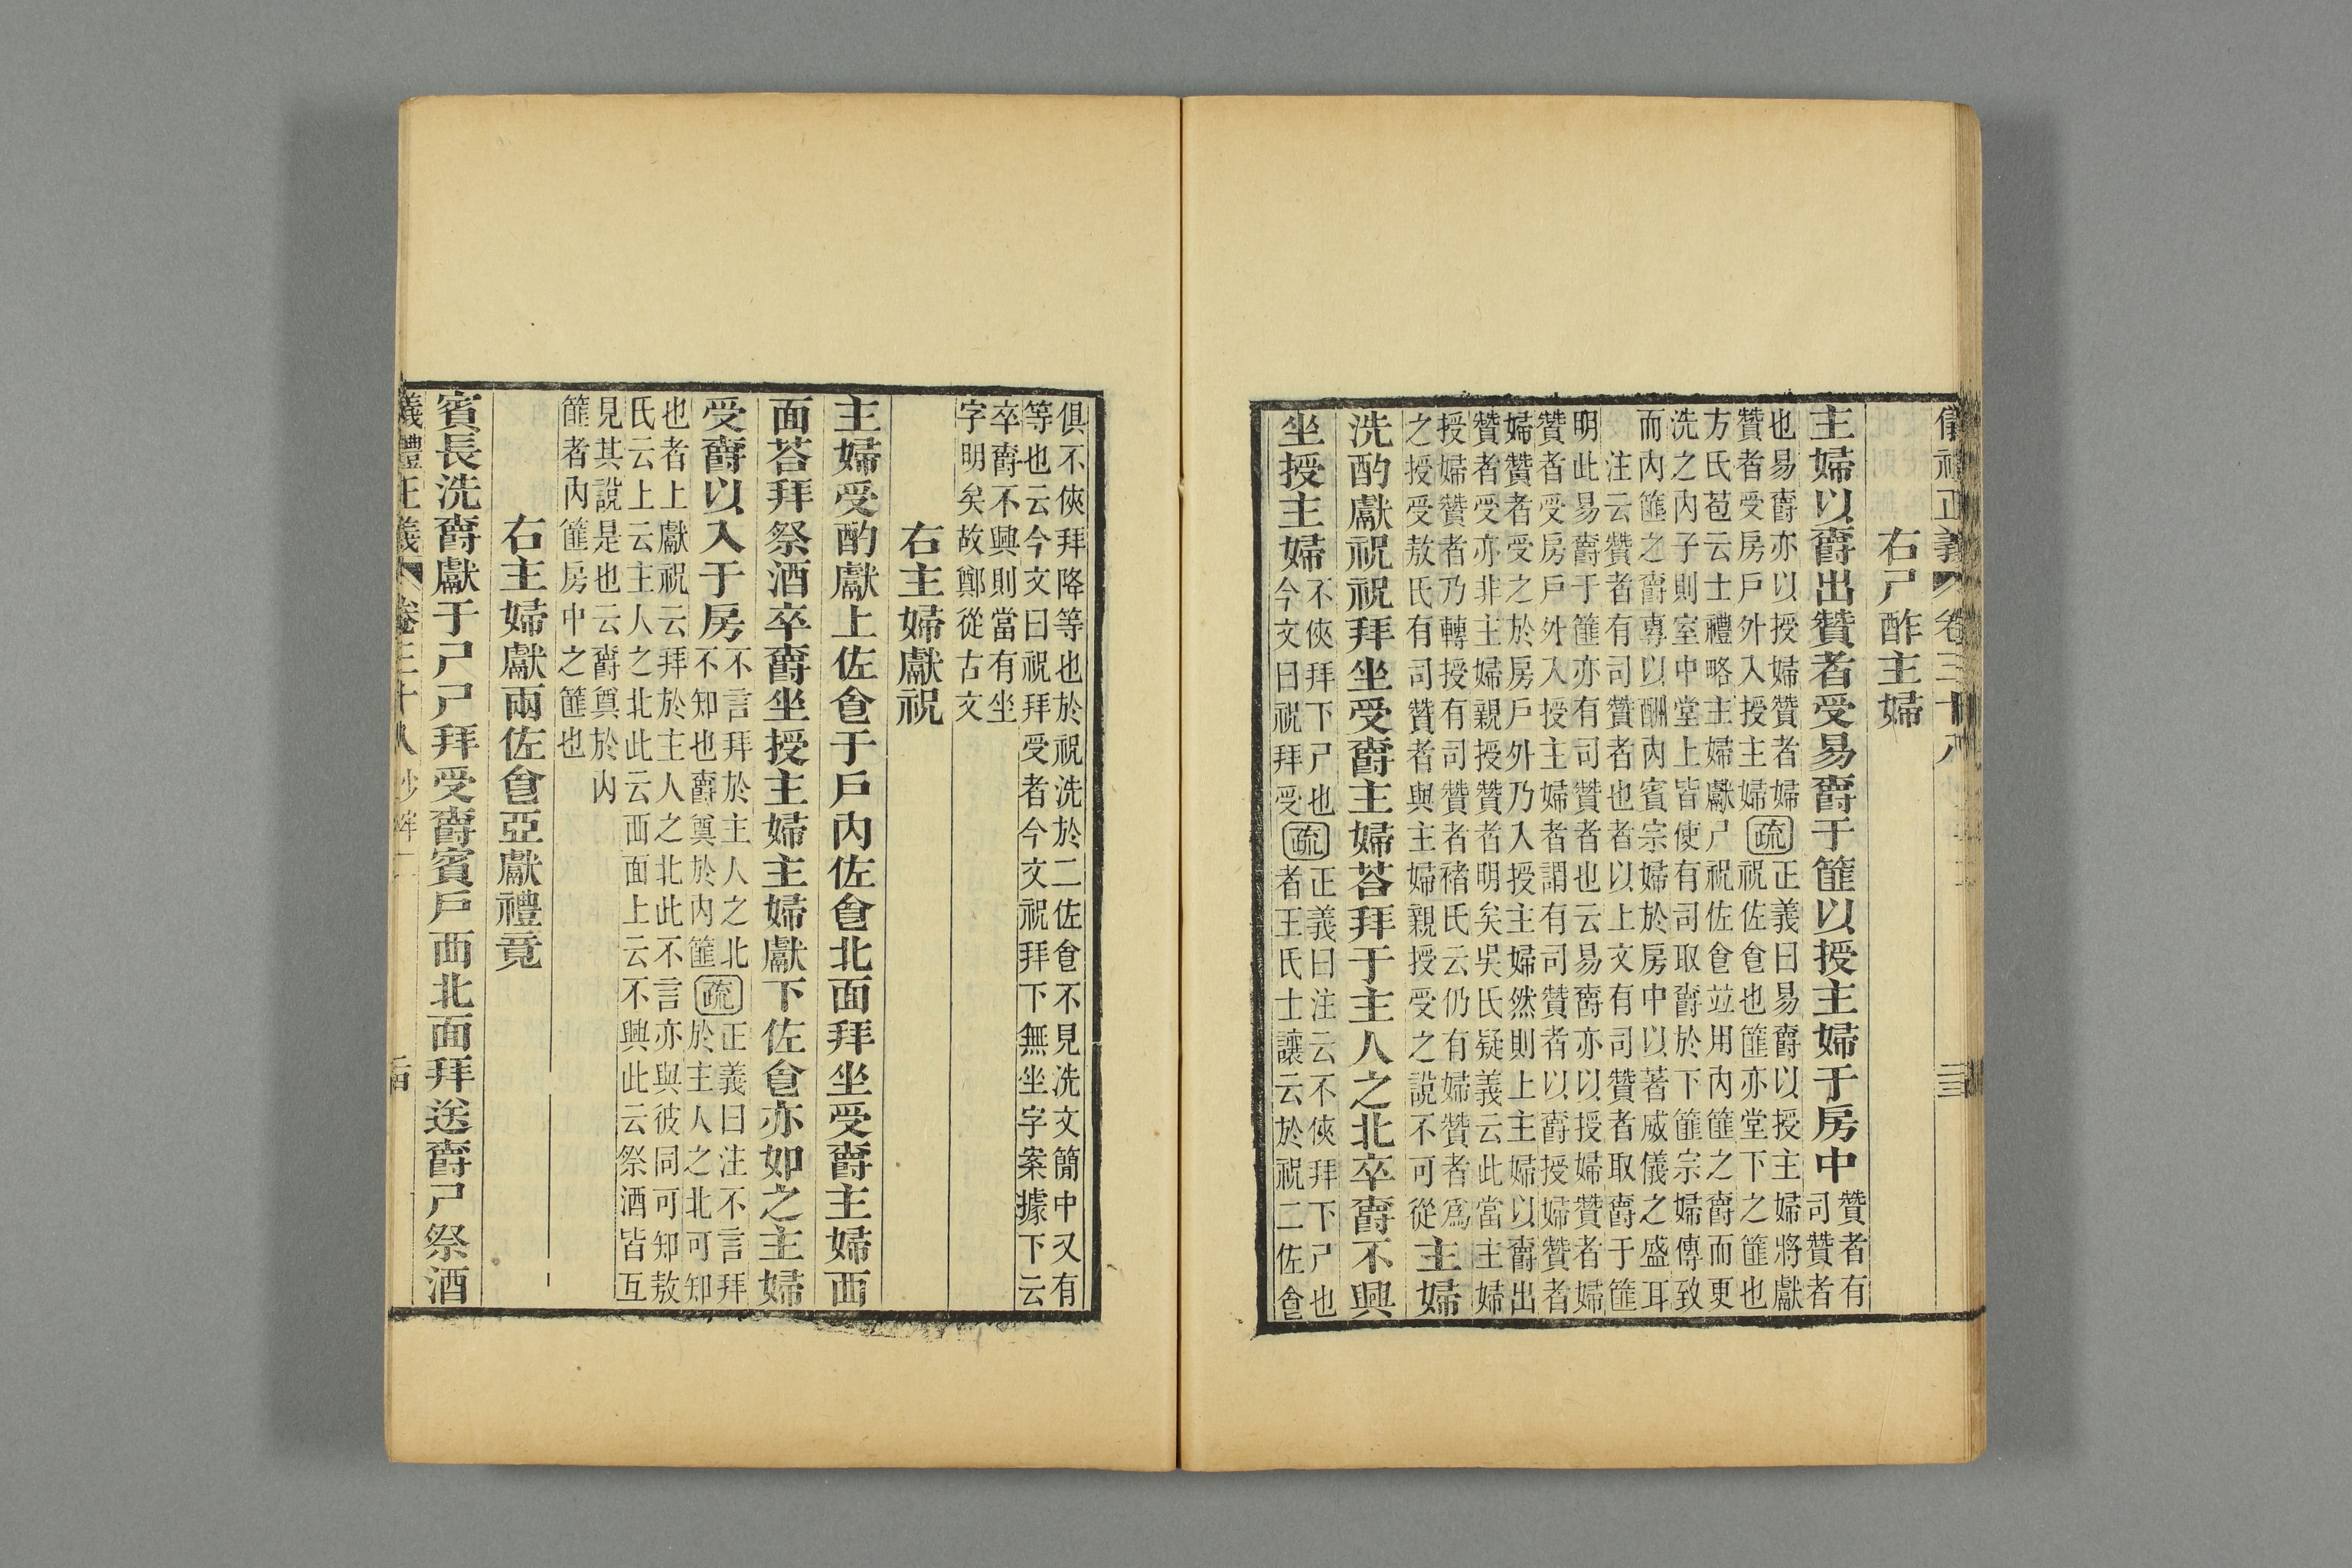 儀禮正義 卷三十八 三三
右尸酢主婦
主婦以爵出贊者受易爵于篚以授主婦于房中
贊者有
司贊者
也易爵亦以授婦贊者婦
贊者受房戶外入授主婦
疏
正義曰易爵以授主婦將獻
祝佐食也篚亦堂下之篚也
方氏苞云士禮略主婦獻尸祝佐食竝用內篚之爵而更
洗之內子則室中堂上皆使有司取爵於下篚宗婦傳致
而內篚之爵專以酬內賓宗婦於房中以著威儀之盛耳
注云贊者有司贊者也者以上文有司贊者取爵于篚
明此易爵于篚亦有司贊者也云易爵亦以授婦贊者婦
贊者受房戶外入授主婦者謂有司贊者以爵授婦贊者
婦贊者受之於房戶外乃入授主婦然則上主婦以爵出
贊者受亦非主婦親授贊者明矣吳氏疑義云此當主婦
授婦贊者乃轉授有司贊者褚氏云仍有婦贊者爲
之授受敖氏有司贊者與主婦親授受之說不可從
主婦
洗酌獻祝祝拜坐受爵主婦荅拜于主人之北卒爵不興
坐授主婦
不俠拜下尸也
今文曰祝拜受
疏
正義曰注云不俠拜下尸也
者王氏士讓云於祝二佐食
俱不俠拜降等也於祝洗於二佐食不見洗文簡中又有
等也云今文曰祝拜受者今文祝拜下無坐字案據下云
卒爵不興則當有坐
字明矣故鄭從古文
右主婦獻祝
主婦受酌獻上佐食于戶內佐食北面拜坐受爵主婦西
面荅拜祭酒卒爵坐授主婦主婦獻下佐食亦如之主婦
受爵以入于房
不言拜於主人之北
不知也爵奠於內篚
疏
正義曰注不言拜
於主人之北可知
也者上獻祝云拜於主人之北此不言亦與彼同可知敖
氏云上云主人之北此云西面上云不興此云祭酒皆互
見其說是也云爵奠於內
篚者內篚房中之篚也
右主婦獻兩佐食亞獻禮竟
賓長洗爵獻于尸尸拜受爵賓戶西北面拜送爵尸祭酒
儀禮正義 卷三十八